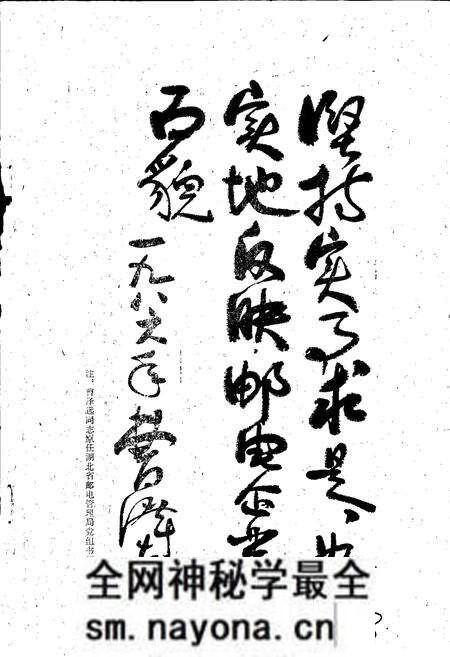 坚持实事求是、
实地反映邮电企业
面貌
一九八六年 曹泽
注：曹泽远同志原任湖北省邮电管理局党组书
全网神秘学最全
sm.nayona.cn